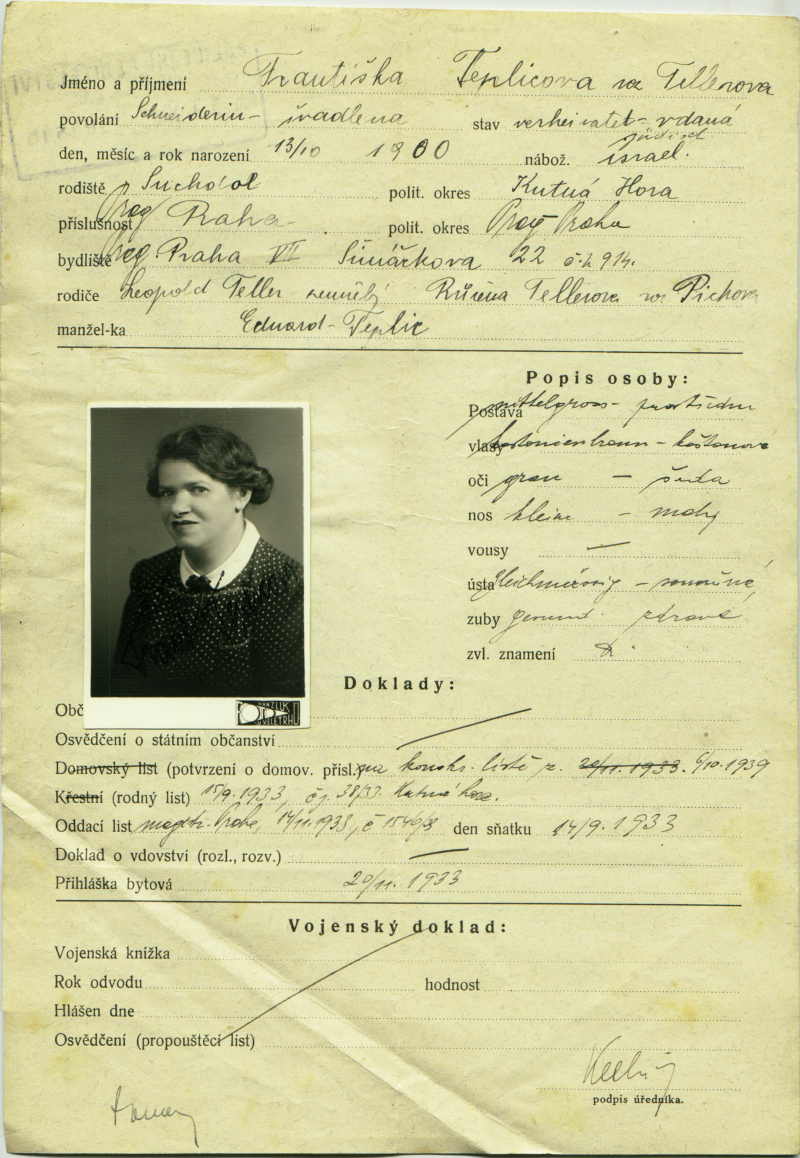 Jméno a příjmení Františka Teplicova roz Tellerova
povolání Schneiderin - švadlena stav verheiratet - vdaná
jüdisch
den, měsíc a rok narození 13/10 1900 nábož. israel.
rodiště Suchdol polit. okres Kutná Hora
příslušnost Prag Praha polit. okres Prag Praha
bydliště Prag Praha VII Šimáčkova 22 č. 914.
rodiče Leopold Teller zemřelý Růžena Tellerova roz Pickova
manžel-ka Eduard Teplic
Popis osoby:
Postava mittelgross - prostřední
vlasy kastanienbraun - kaštanové
oči grau - šedá
nos klein - malý
vousy —
ústa - souměrné
zuby gesund zdravé
zvl. znamení
Doklady:
Obč
Osvědčení o státním občanství
Domovský list (potvrzení o domov. přísl.) listě z. 20/11. 1933. 6/10. 1939
Křestní (rodný list) 15/9. 1933, čj. 38/33. Kutná Hora.
Oddací list magistr. Praha, den sňatku 14/9. 1933
Doklad o vdovství (rozl., rozv.) —
Přihláška bytová 20/11. 1933
Vojenský doklad:
Vojenská knížka
Rok odvodu hodnost
Hlášen dne
Osvědčení (propouštěcí list)
podpis úředníka.